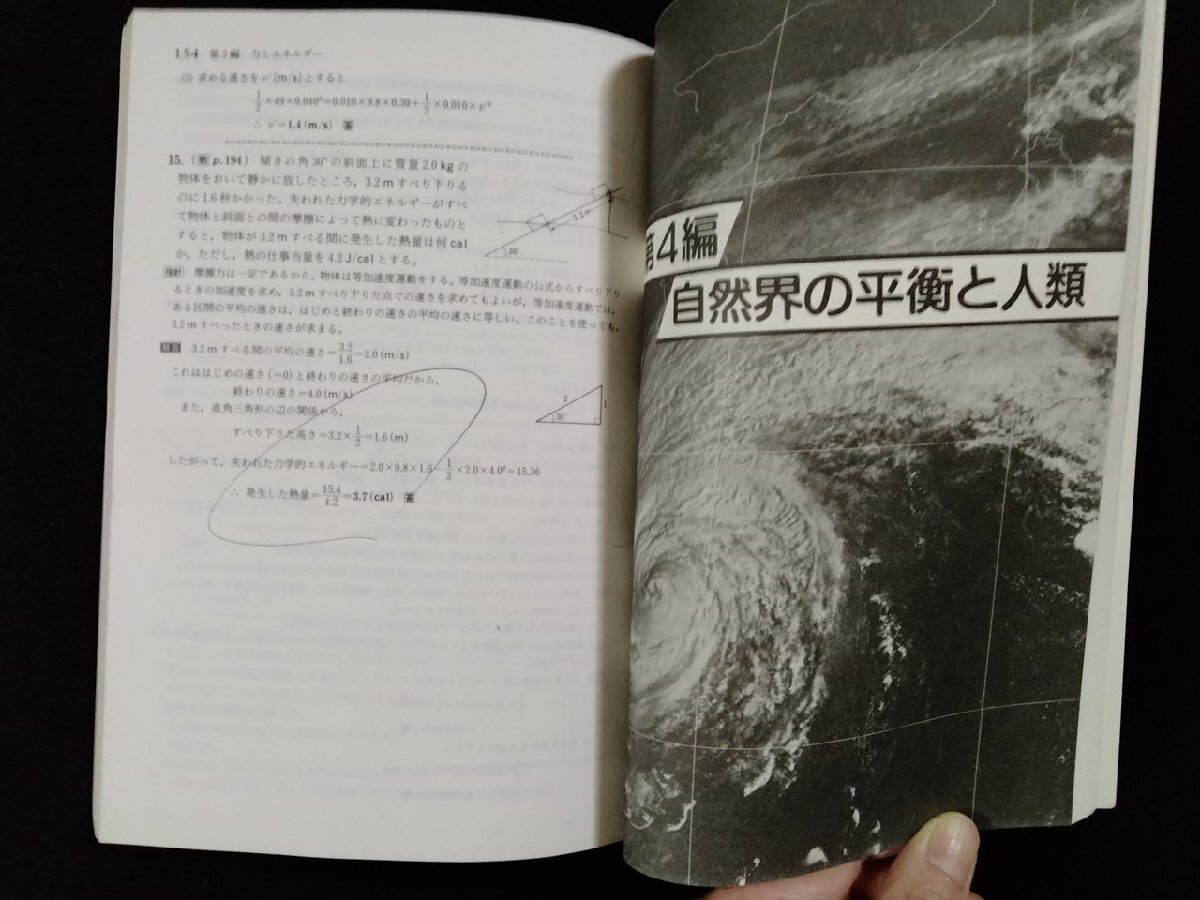 154 第3編 力とエネルギー
(3) 求める速さを v′[m/s]とすると
1/2×49×0.040²=0.010×9.8×0.30+1/2×0.010×v′²
∴ v′=1.4(m/s) 答
15. (教 p.194) 傾きの角30°の斜面上に質量2.0kgの
物体をおいて静かに放したところ，3.2mすべり下りる
のに1.6秒かかった。失われた力学的エネルギーがすべ
て物体と斜面との間の摩擦によって熱に変わったものと
すると，物体が3.2mすべる間に発生した熱量は何cal
か。ただし，熱の仕事当量を4.2J/calとする。
3.2m
30°
指針 摩擦力は一定であるから，物体は等加速度運動をする。等加速度運動の公式からすべり下り
るときの加速度を求め，3.2mすべり下りた点での速さを求めてもよいが，等加速度運動では，
ある区間の平均の速さは，はじめと終わりの速さの平均の速さに等しい。このことを使っても，
3.2mすべったときの速さが求まる。
解答 3.2mすべる間の平均の速さ=3.2/1.6=2.0(m/s)
これははじめの速さ(=0)と終わりの速さの平均だから，
終わりの速さ=4.0(m/s)
また，直角三角形の辺の関係から，
2
1
30°
すべり下りた高さ=3.2×1/2=1.6(m)
したがって，失われた力学的エネルギー=2.0×9.8×1.6−1/2×2.0×4.0²=15.36
∴ 発生した熱量=15.4/4.2=3.7(cal) 答
第4編
自然界の平衡と人類